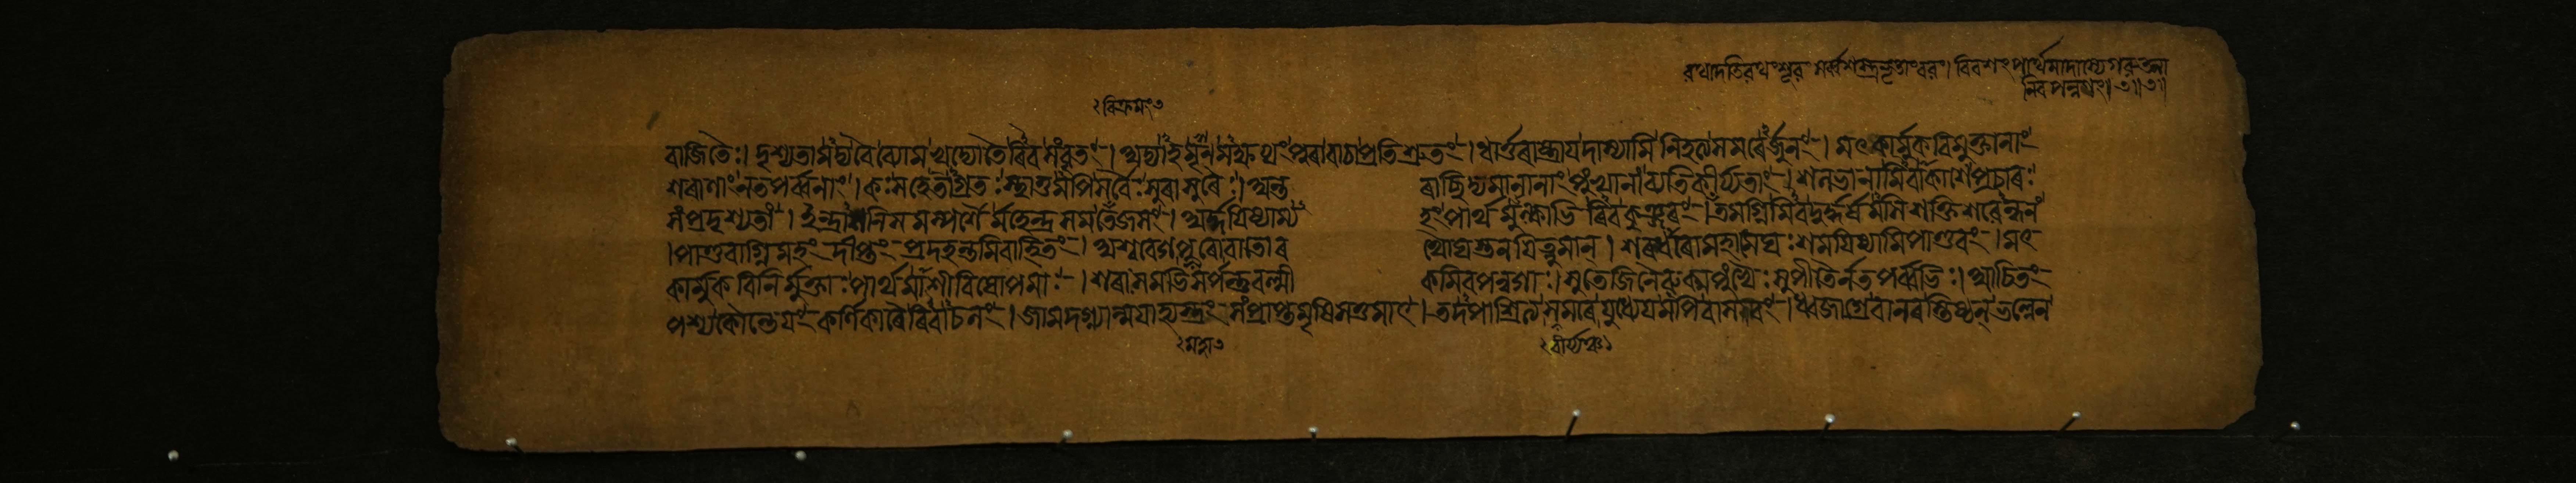 ৰথাদতিৰথং শূৰং সর্ব্বশস্ত্রভৃতাং বৰং। বিবশং পার্থমাদাস্যে গৰুত্মা
নিব পন্নগং। ৩॥৩॥
বিক্রমং ৩
ৰাজিতৈঃ। দৃশ্যতামদ্যবৈ ব্যোমখদ্যোতৈৰিব সংবৃতং। অদ্যাহমৃণমক্ষয্যং পুৰাবাচাপ্রতিশ্রুতং। ধার্ত্তৰাষ্ট্রায়দাস্যামি নিহত্যসমৰের্জুনং। মৎকার্ম্মুকবিমুক্তানাং
শৰাণাং নতপর্ব্বনাং। কঃ সহেতাগ্রতঃ স্থাতুমপিসর্ব্বৈঃ সুৰাসুৰৈঃ। অন্ত ৰাচ্ছিদ্যমানানাং পুংখানাং ব্যতিকীর্য্যতাং। শলভানামিবাকাশেপ্রচাৰঃ
সংপ্রদৃশ্যতাং। ইন্দ্রাশনিসমস্পর্শৈর্মহেন্দ্রসমতেজসং। অর্দ্দয়িষ্যাম্য হং পার্থমুল্কাভিৰিবকুঞ্জৰং। তমগ্নিমিবদুর্দ্ধর্ষমসিশক্তিশৰেন্ধনং
।পাণ্ডবাগ্নিমহং দীপ্তং প্রদহন্তমিবাহিতং। অশ্ববেগপুৰোবাতোৰ থোঘস্তনয়িত্নুমান্। শৰধাৰোমহামেঘঃ শময়িষ্যামিপাণ্ডবং। মৎ
কার্ম্মুকবিনির্ম্মুক্তাঃ পার্থমাশীবিষোপমাঃ। শৰাঃ সমভিসর্পন্তুবল্মী কমিবপন্নগাঃ। সুতেজিনৈৰুক্মপুংখৈঃ সুপীতৈর্নতপর্ব্বভিঃ। আচিতং
পশ্যকৌন্তেয়ং কর্ণিকাৰৈৰিবাচলং। জামদগ্ন্যান্ময়াহ্যস্ত্রং সংপ্রাপ্তমৃষিসত্তমাৎ। তদপাশ্রিত্যসমৰেযুধ্যেয়মপিবাসবং। ধ্বজাগ্রেবানৰস্তিষ্ঠন্ভল্লেন
বীর্য্যঞ্চ